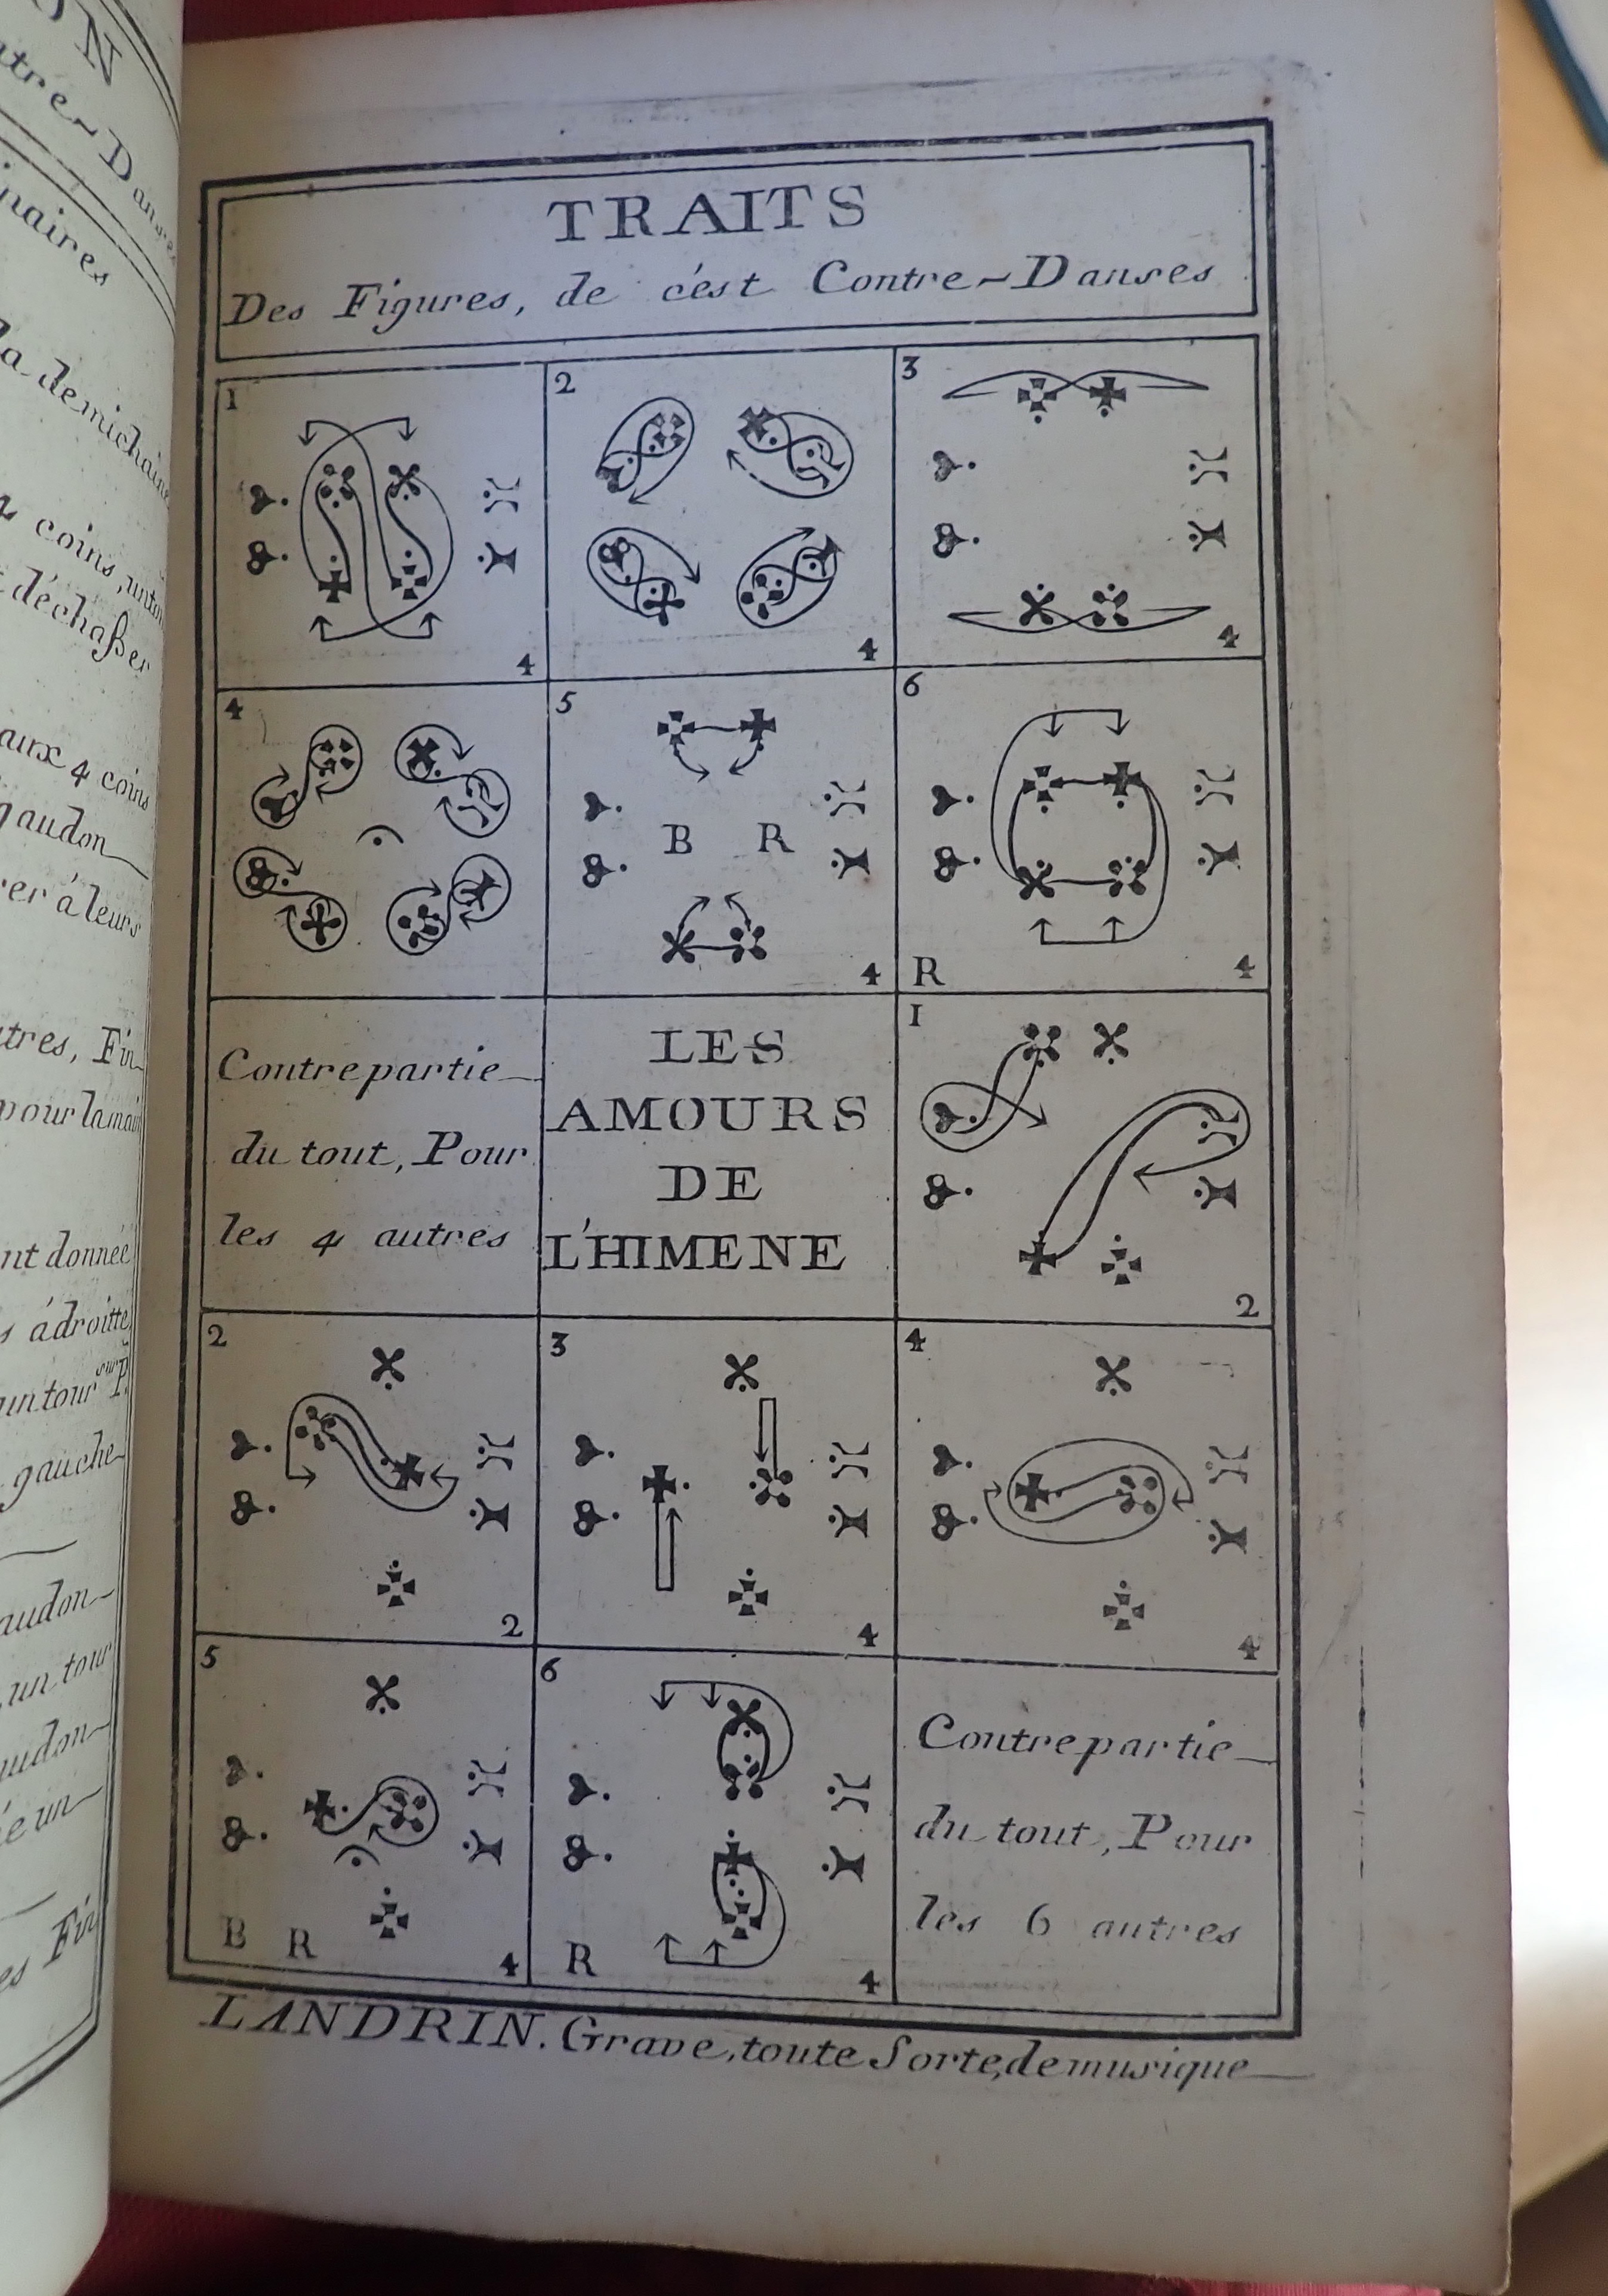 TRAITS
Des Figures, de c'est Contre-Danses
1
4
2
4
3
4
4
5
B R
4
6
R
4
Contrepartie
du tout, Pour
les 4 autres
LES
AMOURS
DE
L'HIMENE
1
2
2
2
3
4
4
4
5
B R
4
6
R
4
Contrepartie
du tout, Pour
les 6 autres
LANDRIN. Grave, toute Sorte, de musique
ON
ntre-Danses
naires
la demichaine
4 coins, un tou
déchaßer
aux 4 coins
gaudon
rer á leurs
utres, Fin
pour la main
nt donnée
s ádroitte
un tour sur P.
gauche
audon
un tour
audon
ée un
es Fin